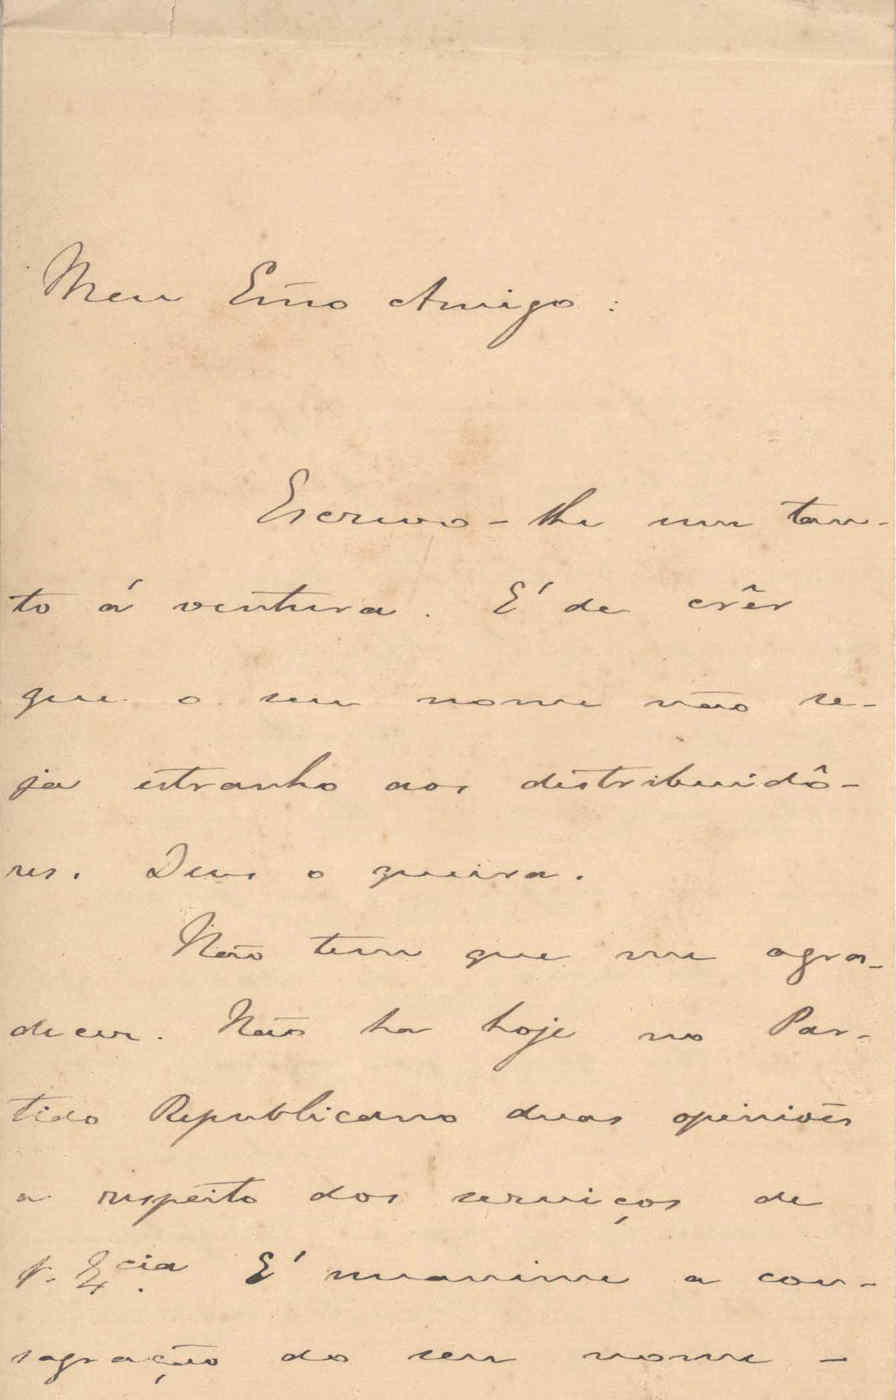 Meu Exmo Amigo:
Escrevo-lhe um tan-
to á ventura. E' de crêr
que o seu nome não se-
ja estranho aos distribuidô-
res. Deus o queira.
Não tem que me agra-
decer. Não ha hoje no Par-
tido Republicano duas opiniões
a respeito dos serviços de
V. Excia. E' unanime a con-
sagração do seu nome -